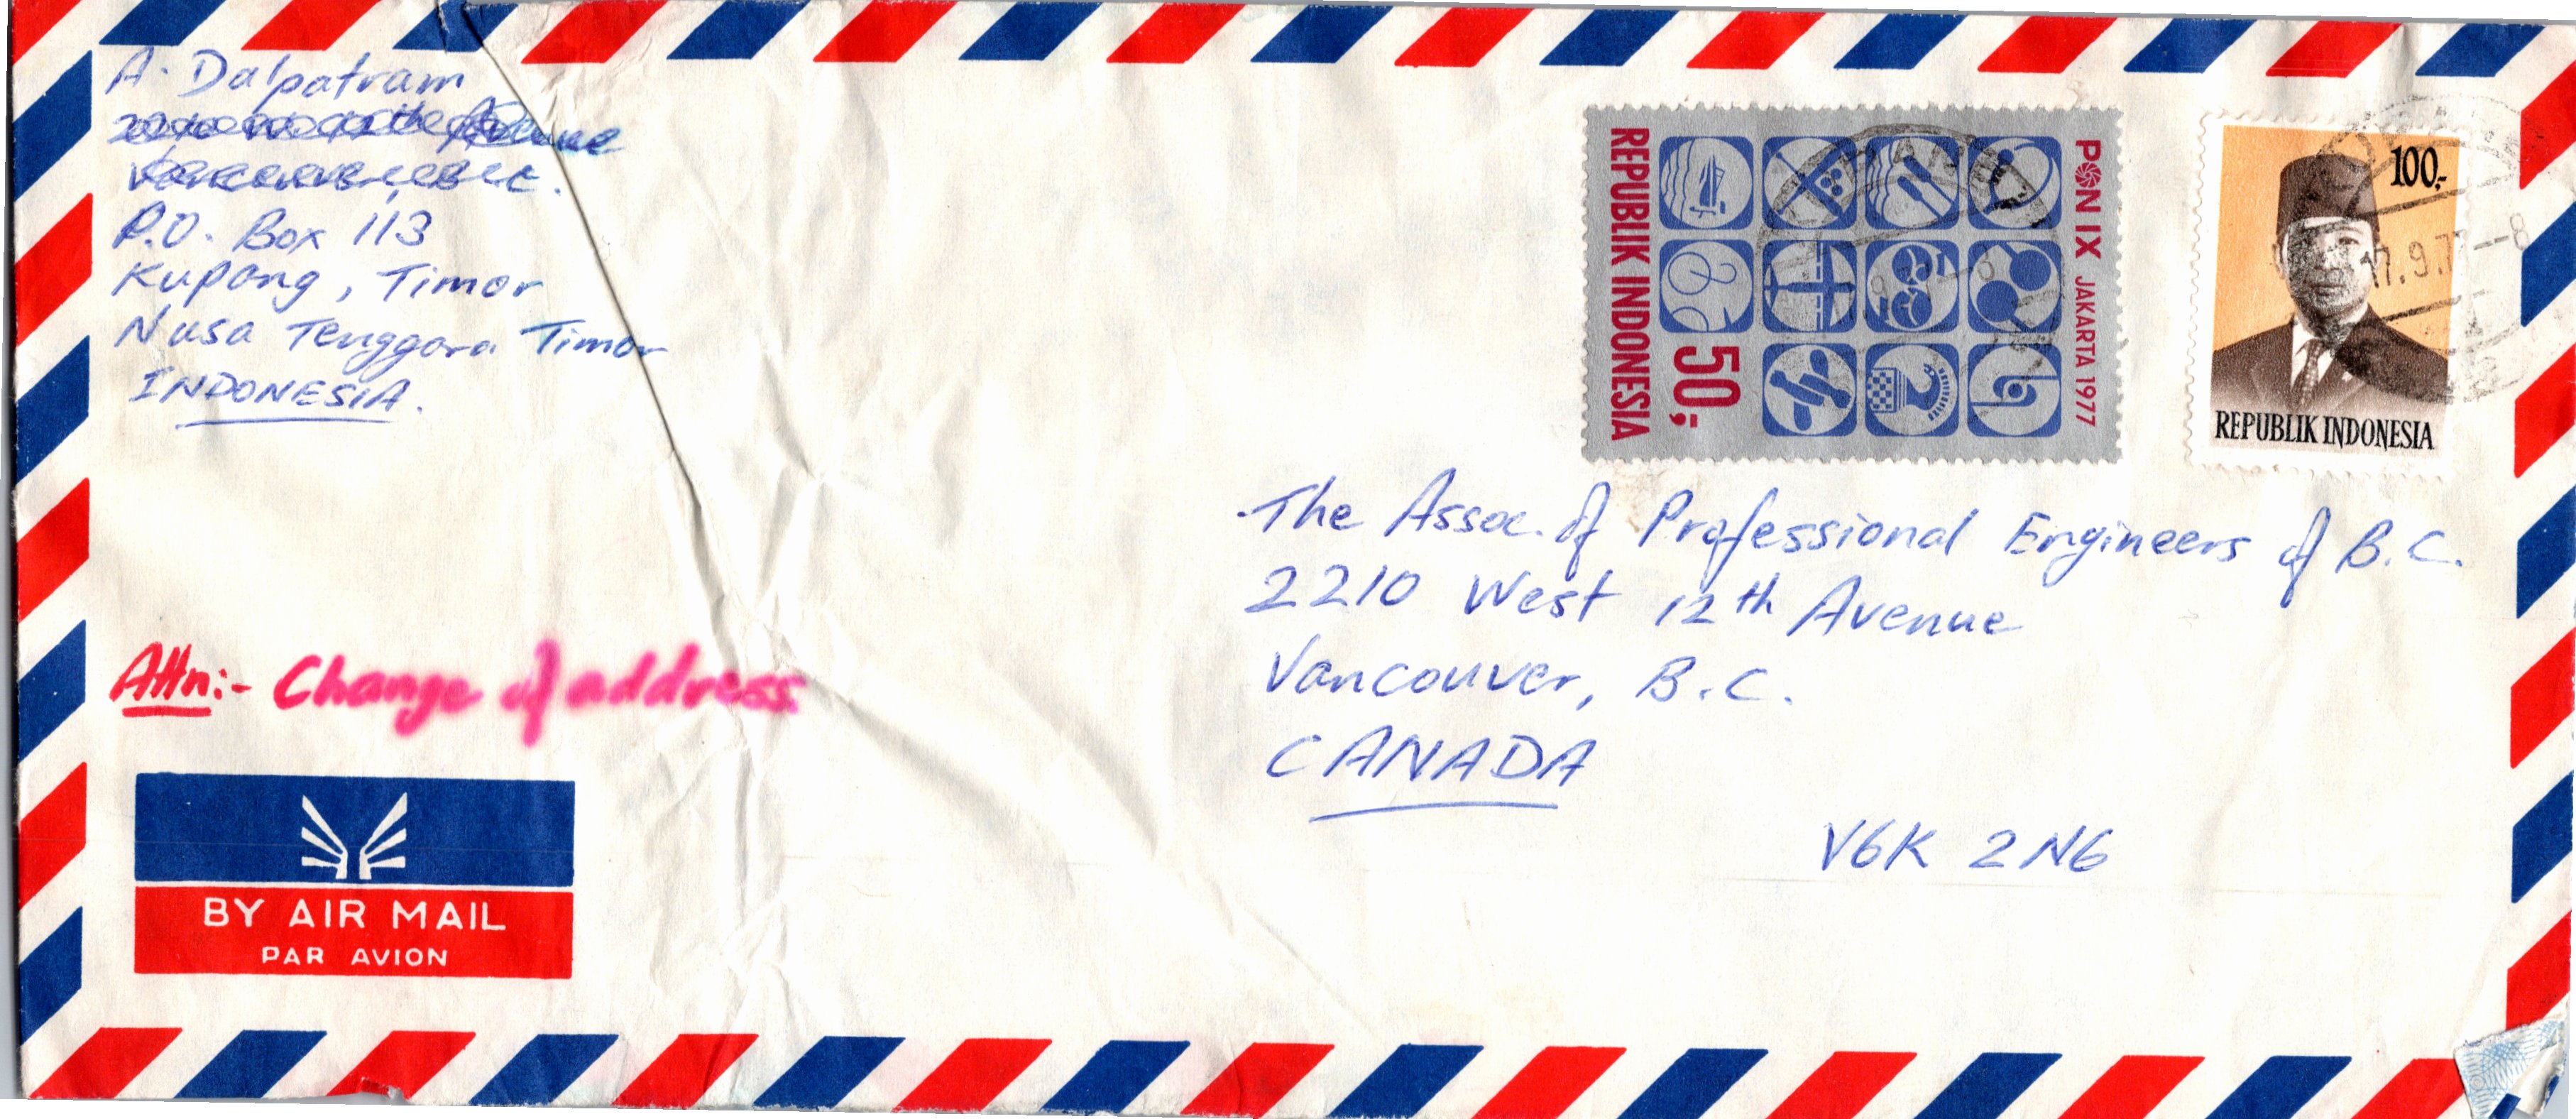 A. Dalpatram
P.O. Box 113
Kupang, Timor
Nusa Tenggara Timor
INDONESIA.
REPUBLIK INDONESIA
50,-
PON IX JAKARTA 1977
100,-
REPUBLIK INDONESIA
The Assoc. of Professional Engineers of B.C.
2210 West 12th Avenue
Vancouver, B.C.
CANADA
V6K 2N6
Attn:- Change of address
BY AIR MAIL
PAR AVION